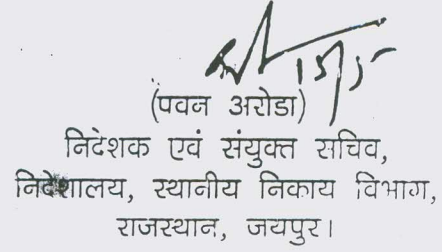 15/5
(पवन अरोडा)
निदेशक एवं संयुक्त सचिव,
निदेशालय, स्थानीय निकाय विभाग,
राजस्थान, जयपुर।